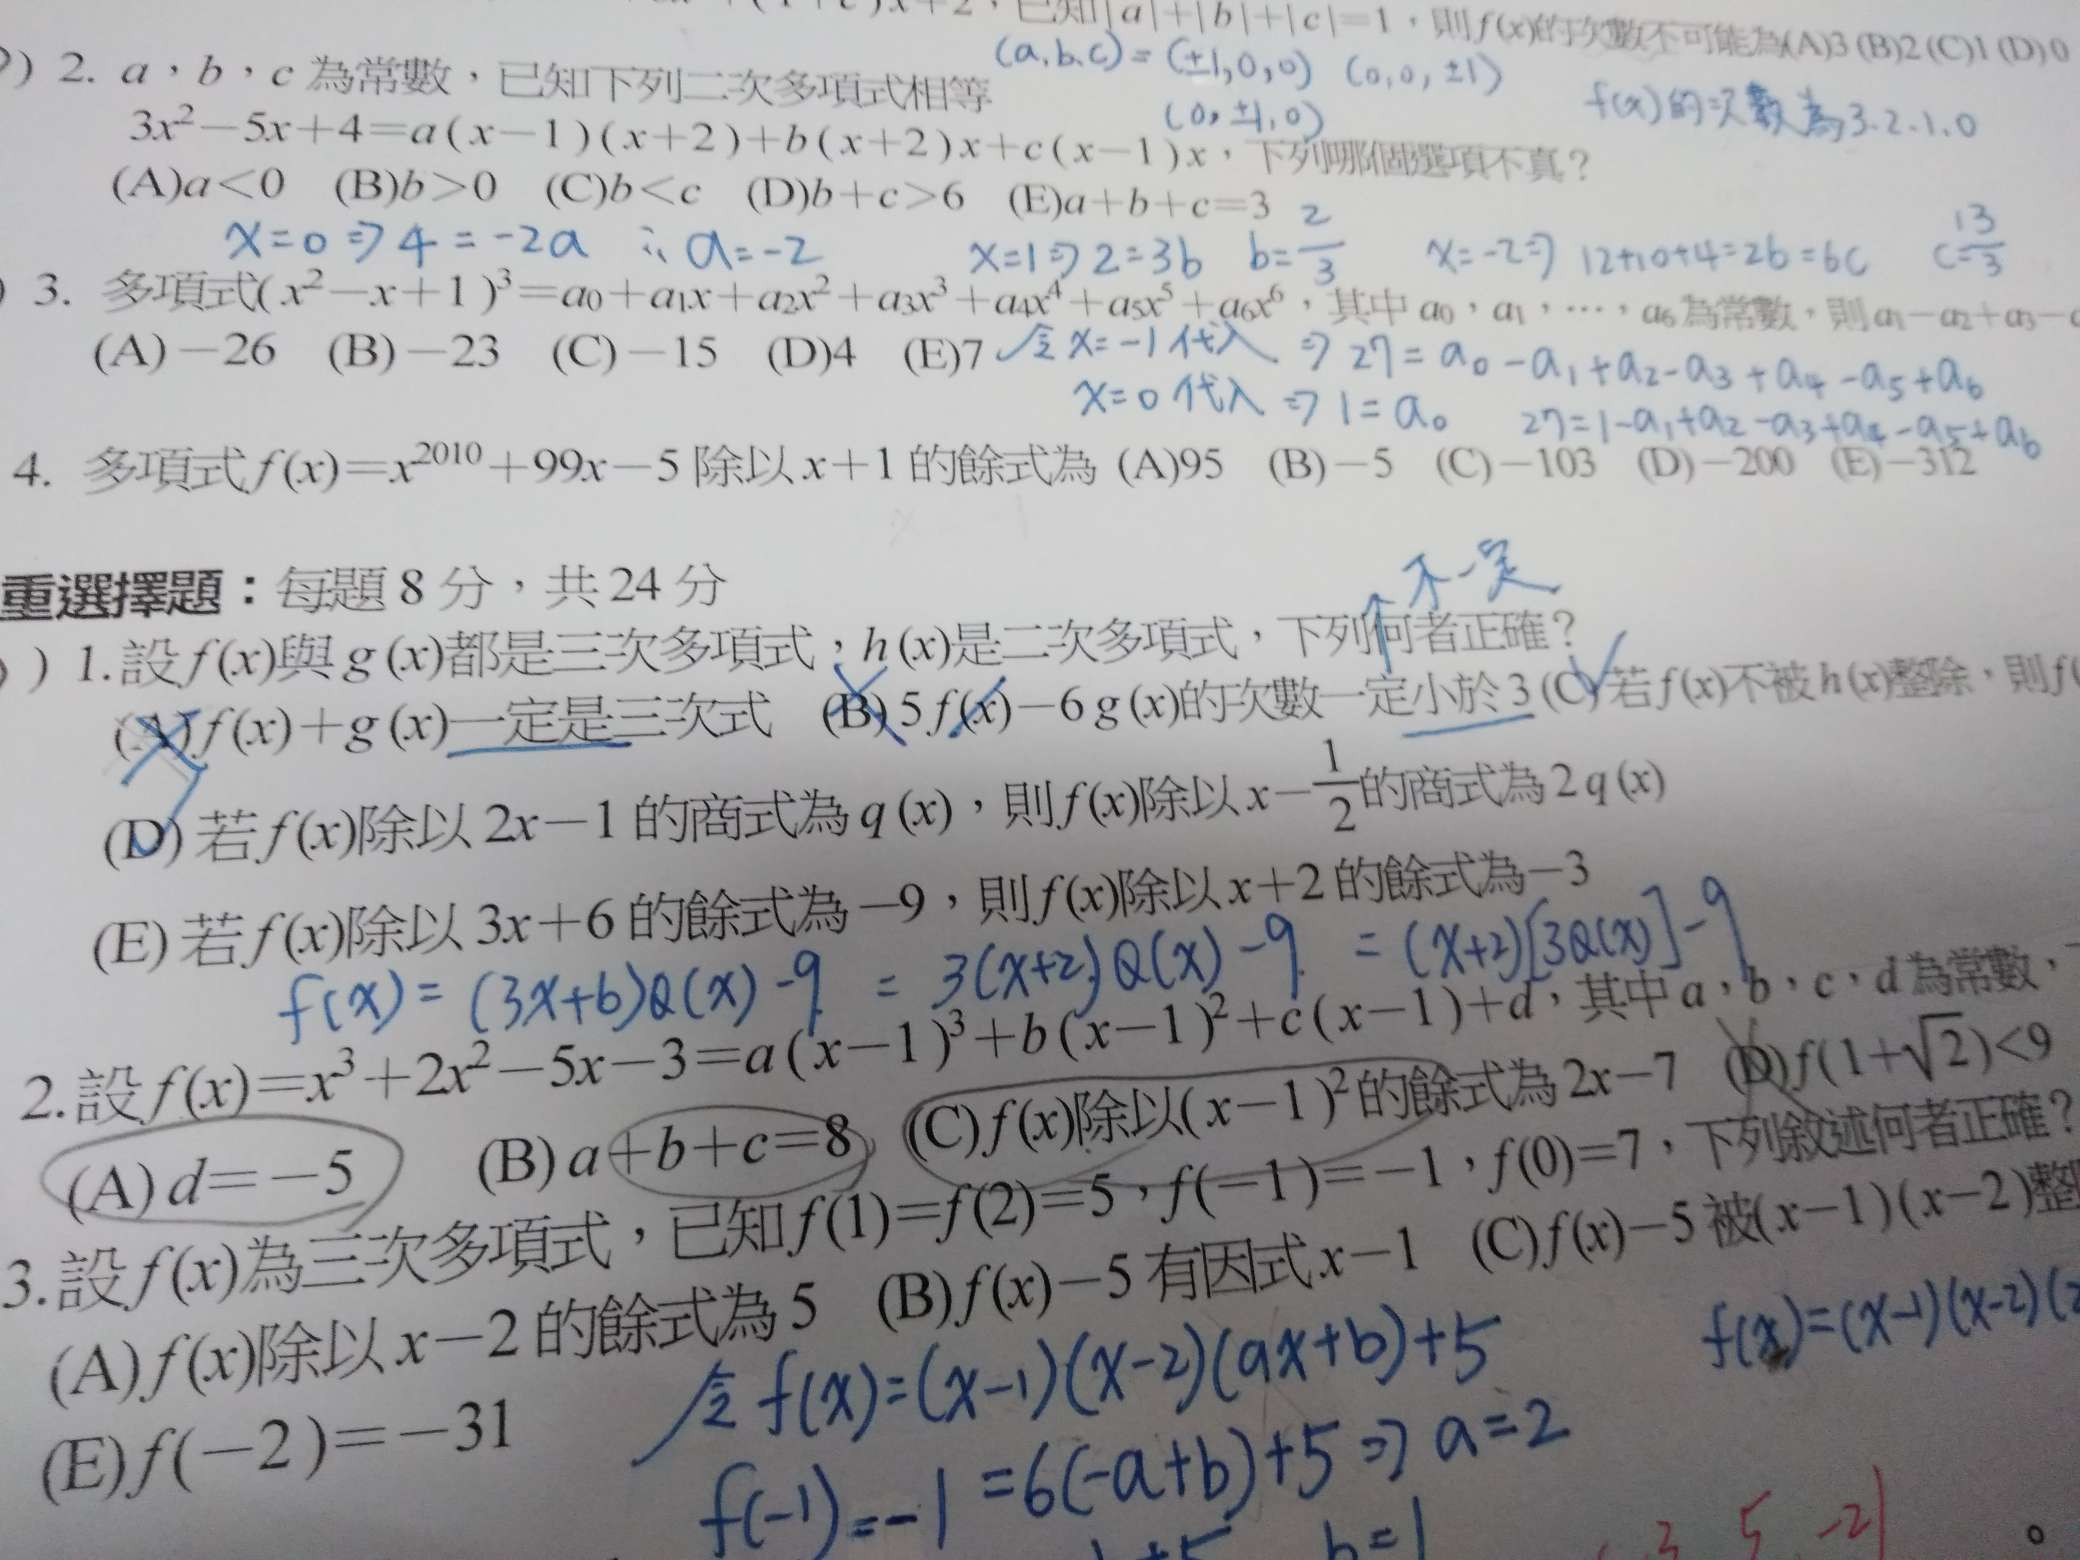 已知|a|+|b|+|c|=1，則f(x)的次數不可能為(A)3 (B)2 (C)1 (D)0
(a,b,c)=(±1,0,0) (0,0,±1)
(0,±1,0)
f(x)的次數為3.2.1.0
) 2. a，b，c 為常數，已知下列二次多項式相等
3x²－5x＋4＝a(x－1)(x＋2)＋b(x＋2)x＋c(x－1)x，下列哪個選項不真？
(A)a＜0 (B)b＞0 (C)b＜c (D)b＋c＞6 (E)a＋b＋c＝3
x=0⇒4=-2a ∴a=-2 x=1⇒2=3b b=2/3 x=-2⇒12+10+4=2b=6c c=13/3
) 3. 多項式(x²－x＋1)³＝a₀＋a₁x＋a₂x²＋a₃x³＋a₄x⁴＋a₅x⁵＋a₆x⁶，其中 a₀，a₁，⋯，a₆ 為常數，則 a₁－a₂＋a₃－
(A)－26 (B)－23 (C)－15 (D)4 (E)7
令x=-1代入⇒27=a₀-a₁+a₂-a₃+a₄-a₅+a₆
x=0代入⇒1=a₀ 27=1-a₁+a₂-a₃+a₄-a₅+a₆
4. 多項式 f(x)＝x²⁰¹⁰＋99x－5 除以 x＋1 的餘式為 (A)95 (B)－5 (C)－103 (D)－200 (E)－312
重選擇題：每題 8 分，共 24 分
不一定
) 1.設 f(x)與 g(x)都是三次多項式，h(x)是二次多項式，下列何者正確？
(A) f(x)＋g(x)一定是三次式 (B) 5f(x)－6g(x)的次數一定小於 3 (C) 若 f(x)不被 h(x)整除，則 f(
(D) 若 f(x)除以 2x－1 的商式為 q(x)，則 f(x)除以 x－1/2 的商式為 2q(x)
(E) 若 f(x)除以 3x＋6 的餘式為－9，則 f(x)除以 x＋2 的餘式為－3
f(x)=(3x+6)Q(x)-9 = 3(x+2)Q(x)-9 =(x+2)[3Q(x)]-9
2.設 f(x)＝x³＋2x²－5x－3＝a(x－1)³＋b(x－1)²＋c(x－1)＋d，其中 a，b，c，d 為常數，
(A) d＝－5 (B) a＋b＋c＝8 (C) f(x)除以(x－1)²的餘式為 2x－7 (D) f(1＋√2)＜9
3.設 f(x)為三次多項式，已知 f(1)＝f(2)＝5，f(－1)＝－1，f(0)＝7，下列敘述何者正確？
(A) f(x)除以 x－2 的餘式為 5 (B) f(x)－5 有因式 x－1 (C) f(x)－5 被(x－1)(x－2)整
(E) f(－2)＝－31
令f(x)=(x-1)(x-2)(ax+b)+5
f(x)=(x-1)(x-2)(2
f(-1)=-1=6(-a+b)+5⇒a=2
b=1
3 5 -2